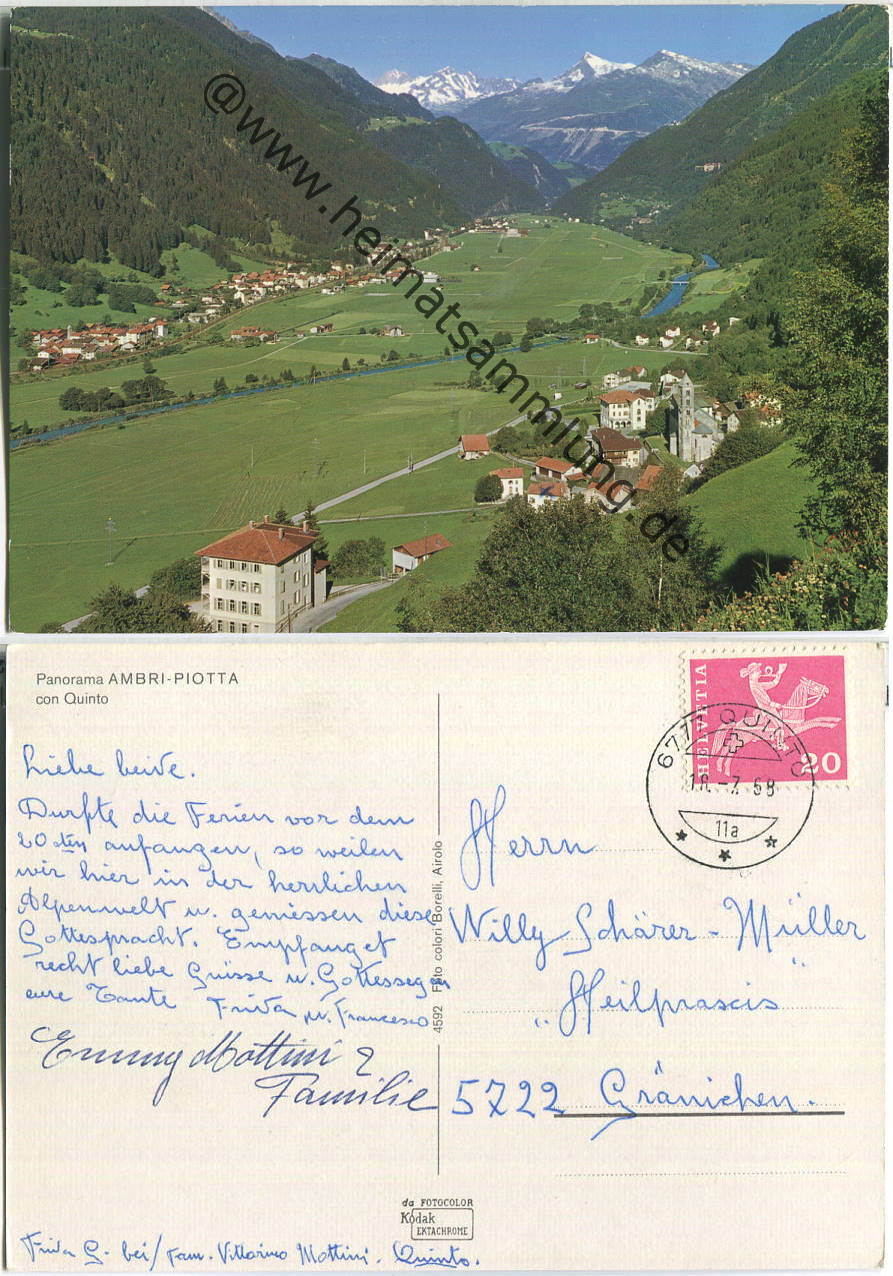 @www.heimatsammlung.de
Panorama AMBRI-PIOTTA
con Quinto
Liebe beide.
Durfte die Ferien vor dem
20sten anfangen, so weilen
wir hier in der herrlichen
Alpenwelt u. geniessen diese
Gottespracht. Empfanget
recht liebe Grüsse u. Gottessegen
eure Tante Frida u. Francesco
Emmy Mottini &
Familie
Frida G. bei/Fam. Vittorino Mottini. Quinto.
4592 Foto colori Borelli, Airolo
da FOTOCOLOR
Kodak
EKTACHROME
HELVETIA
20
6777 QUINTO
-7.68
11a
Herrn
Willy Schärer-Müller
"Heilpraxis"
5722 Gränichen.